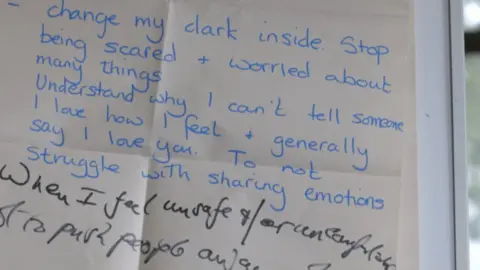 - change my dark inside. Stop
being scared + worried about
many things
Understand why I can't tell someone
I love how I feel + generally
say I love you. To not
struggle with sharing emotions
When I feel unsafe &/or uncomfortable
not to push people away